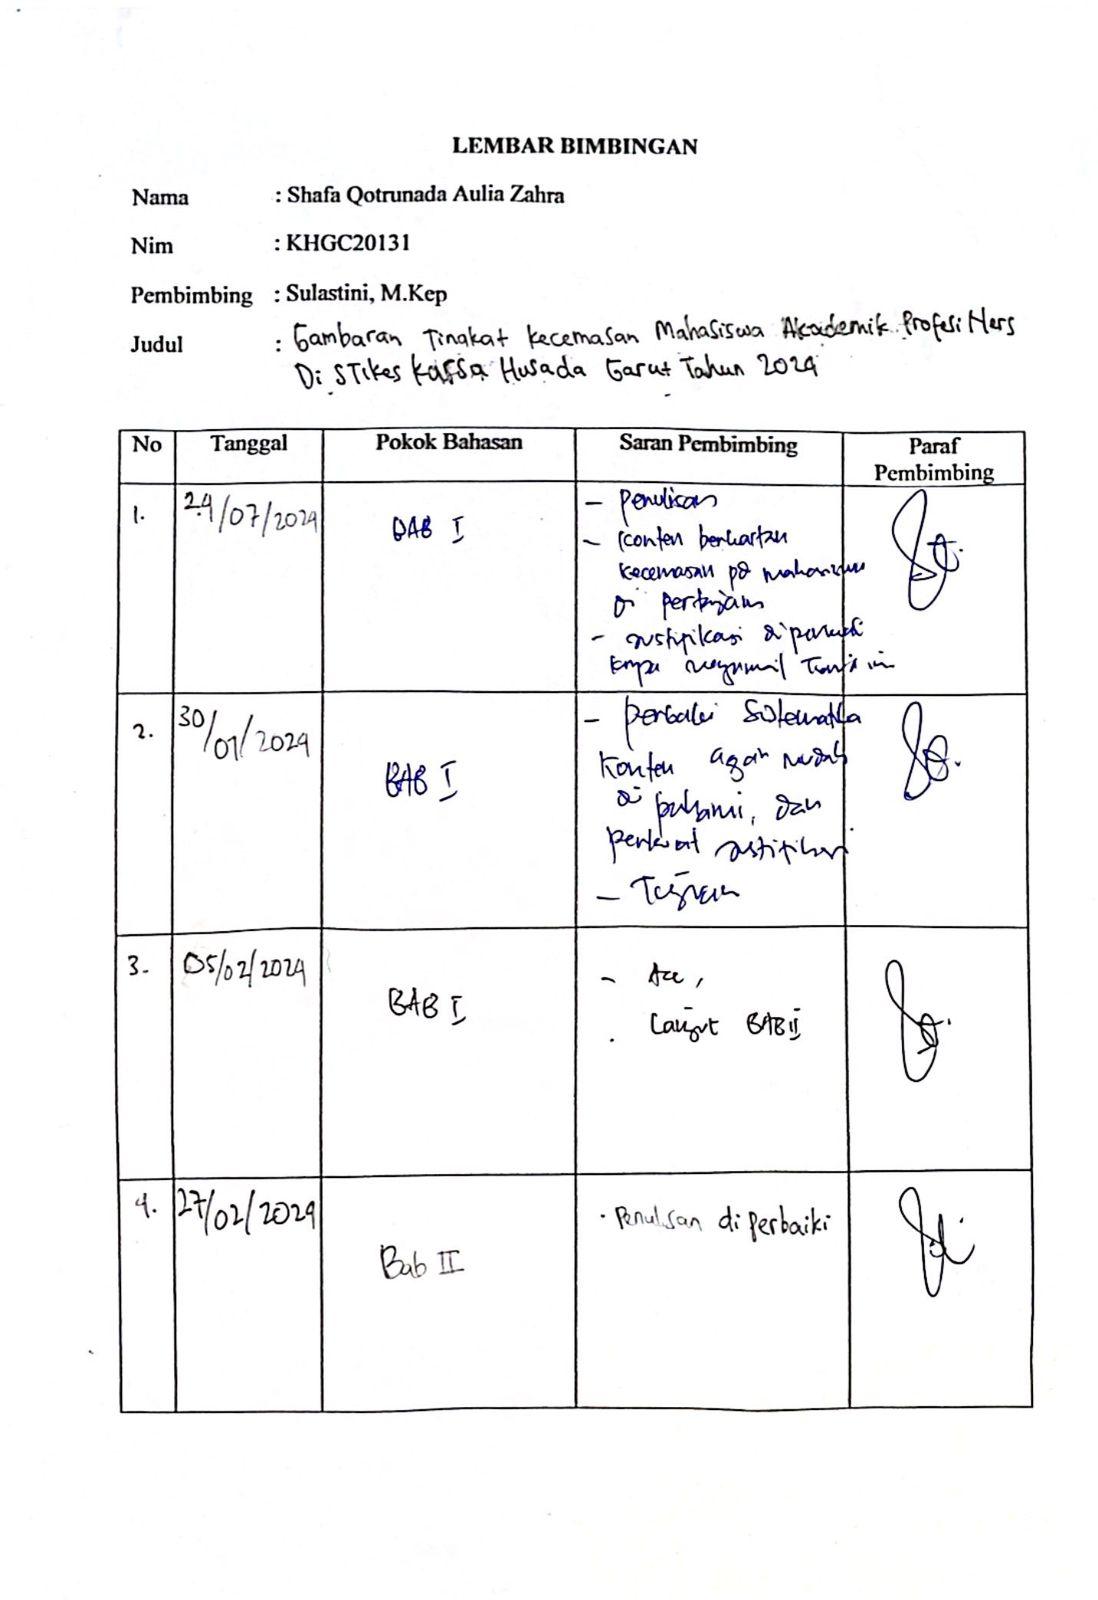 LEMBAR BIMBINGAN
Nama : Shafa Qotrunada Aulia Zahra
Nim : KHGC20131
Pembimbing : Sulastini, M.Kep
Judul : Gambaran Tingkat Kecemasan Mahasiswa Akademik Profesi Ners
Di STikes Karsa Husada Garut Tahun 2024
No Tanggal Pokok Bahasan Saran Pembimbing Paraf
Pembimbing
1. 24/07/2024 BAB I - Penulisan
- Konten
kecemasan pd
di pertajam
- Justifikasi di
2. 30/01/2024 BAB I - Perbaiki Sistematika
Konten agar mudah
di pahami, dan
perkuat justifikasi
- Tujuan
3. 05/02/2024 BAB I - Acc,
. Lanjut BAB II
4. 27/02/2024 Bab II · Penulsan diperbaiki